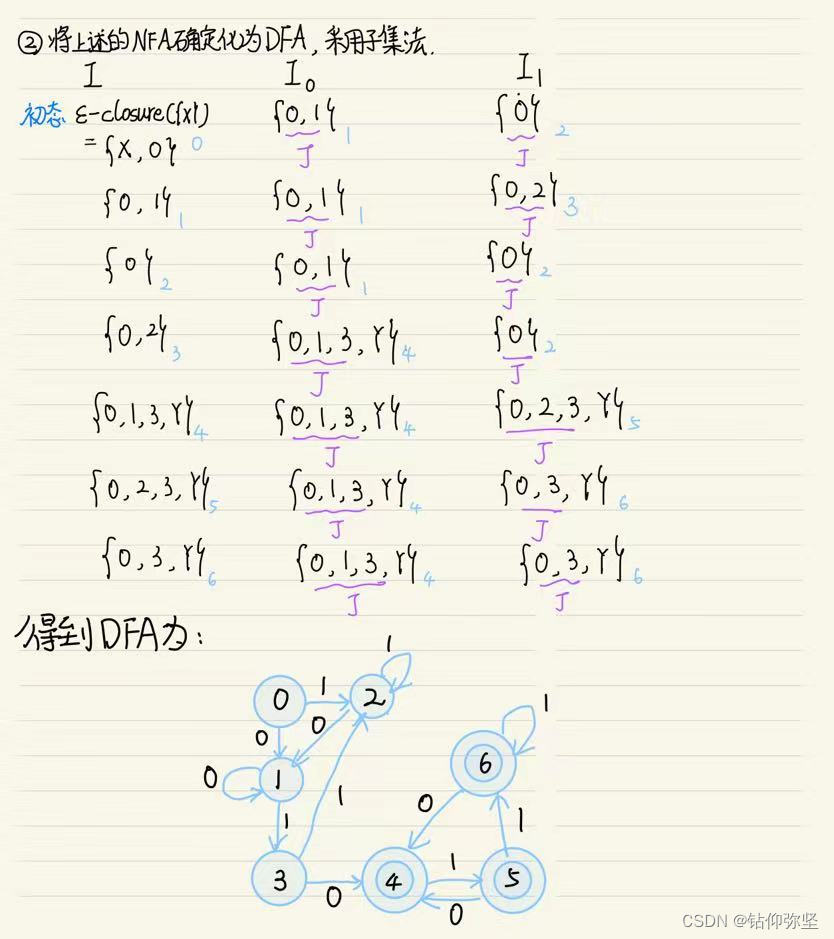 ② 将上述的NFA确定化为DFA, 采用子集法.
I I₀ I₁
初态 ε-closure({x}) {0,1} 1 {0} 2
J J
= {X,0} 0
{0,1} 1 {0,1} 1 {0,2} 3
J J
{0} 2 {0,1} 1 {0} 2
J J
{0,2} 3 {0,1,3,Y} 4 {0} 2
J J
{0,1,3,Y} 4 {0,1,3,Y} 4 {0,2,3,Y} 5
J J
{0,2,3,Y} 5 {0,1,3,Y} 4 {0,3,Y} 6
J J
{0,3,Y} 6 {0,1,3,Y} 4 {0,3,Y} 6
J J
得到DFA为:
1
0 1 2
0 0 1
6
0 1 1 0
1 1
3 0 4 1 5
0
CSDN @钻仰弥坚